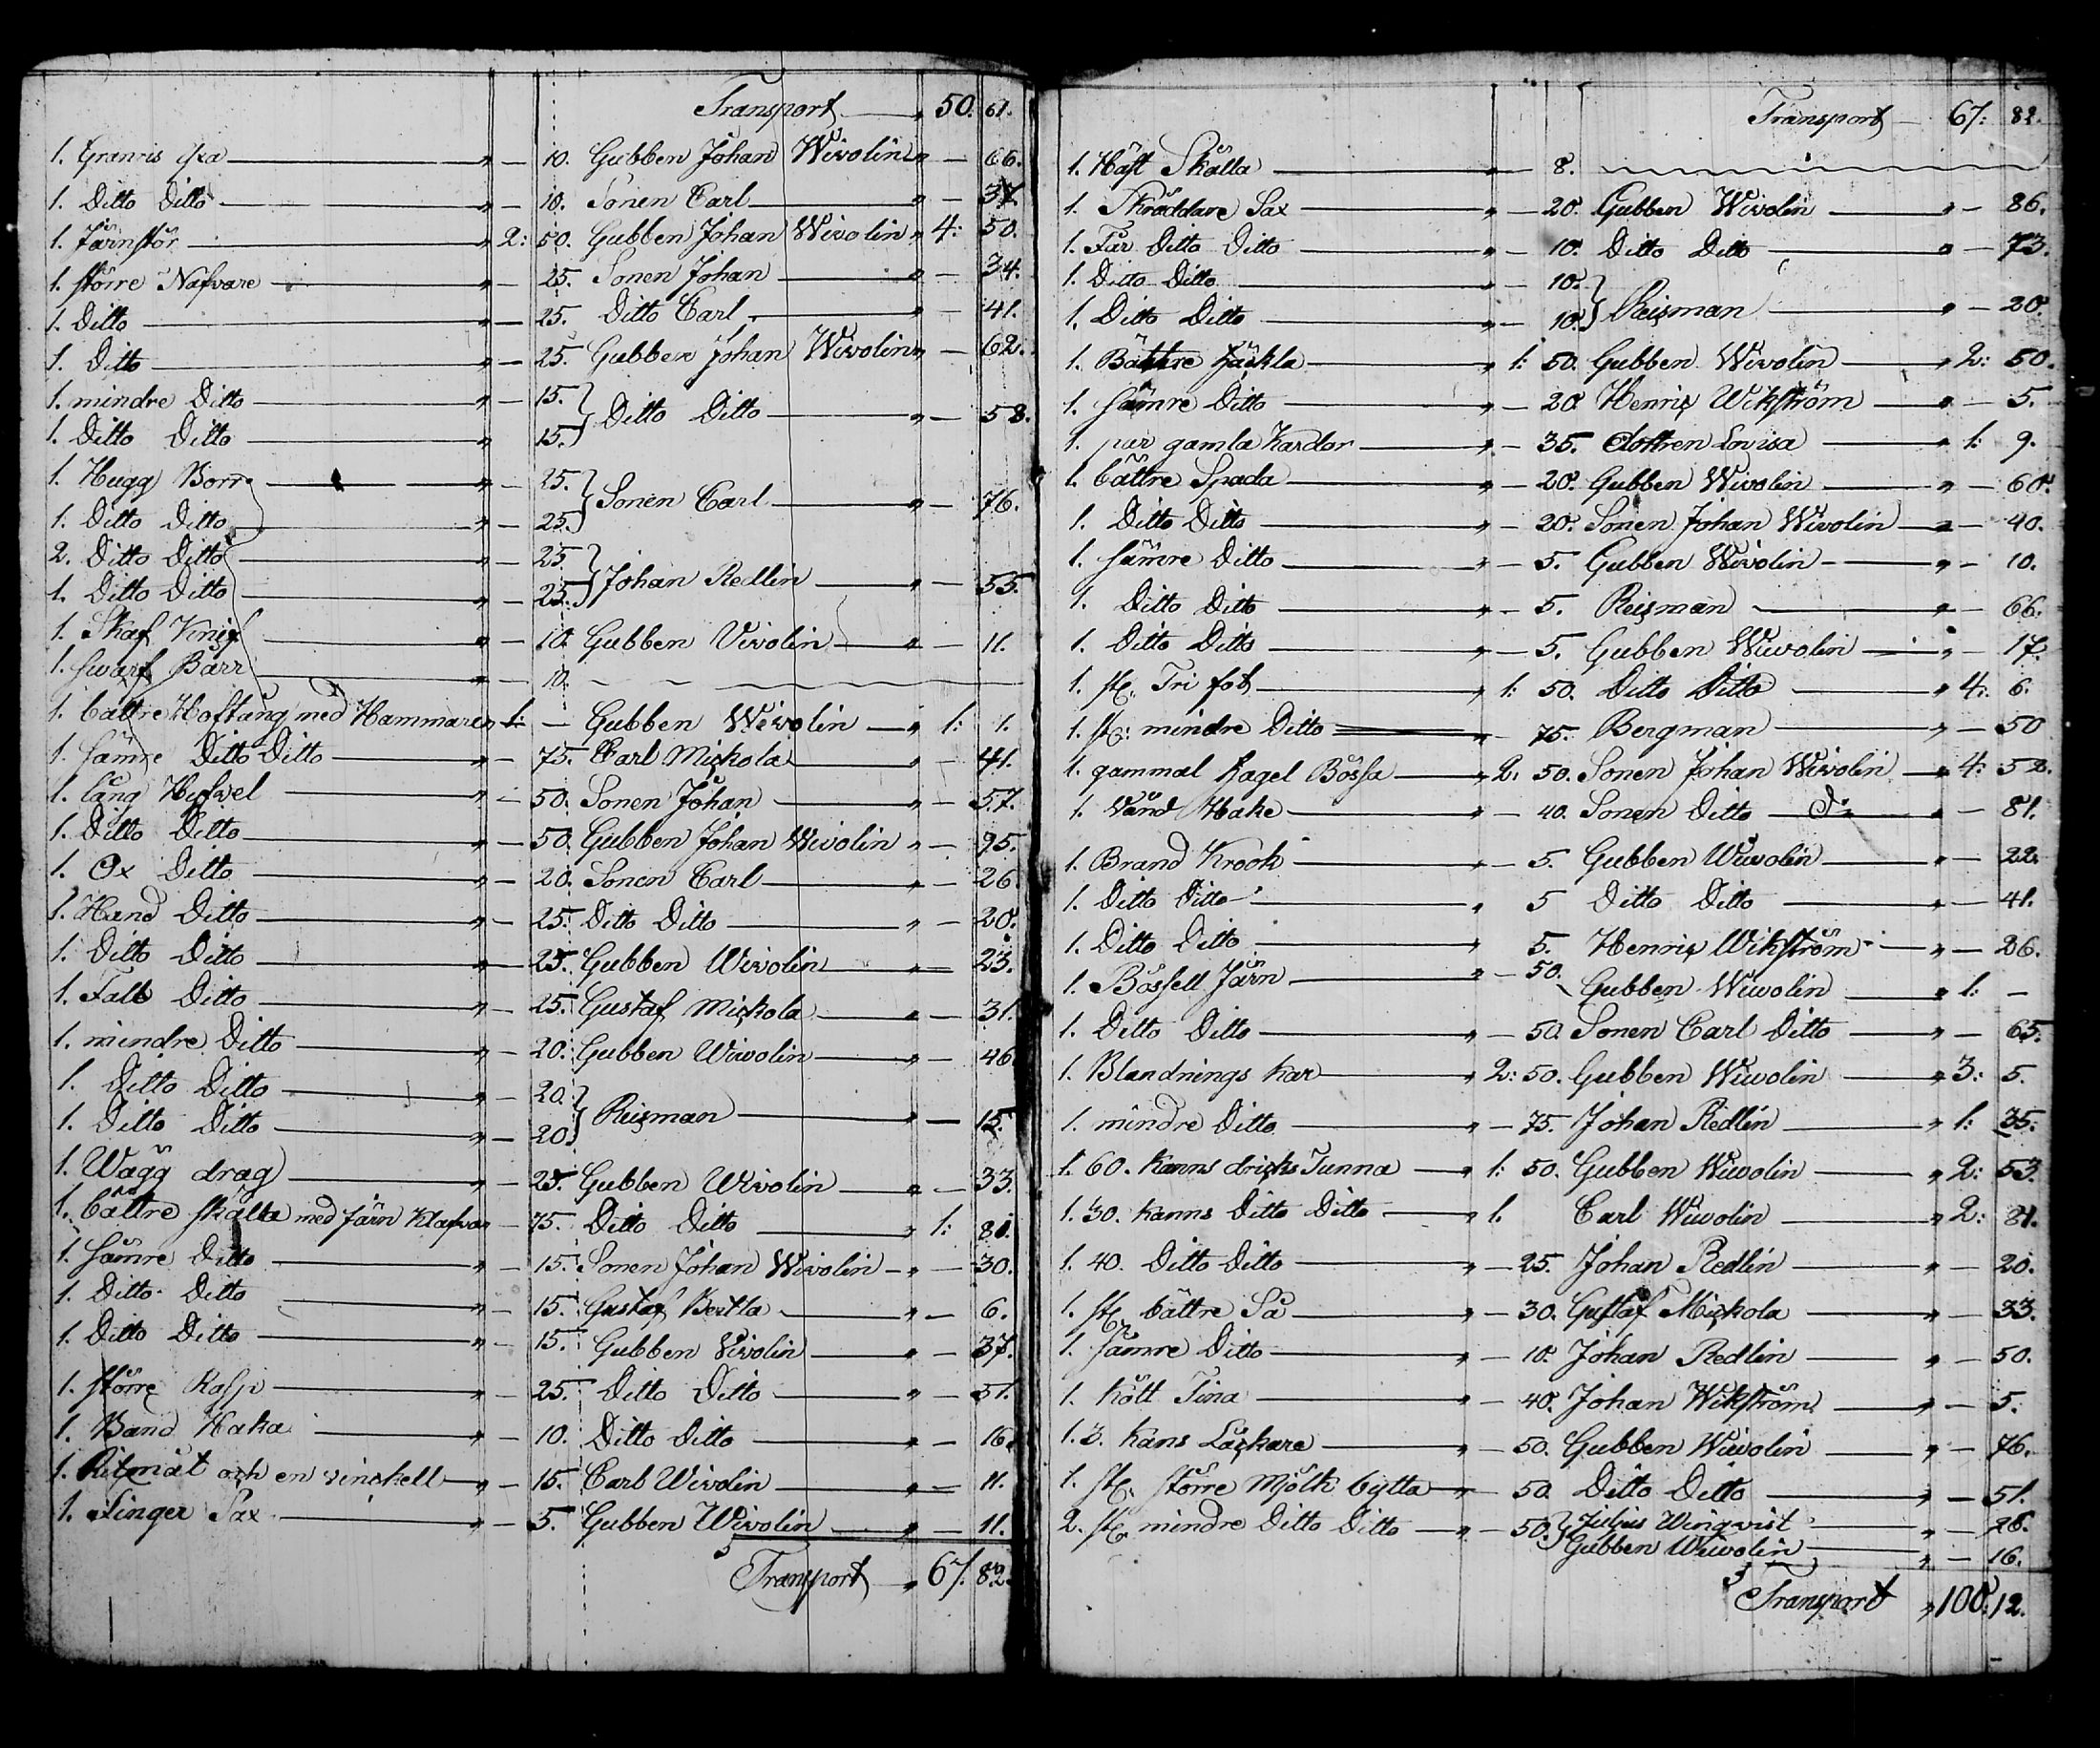 Transport 50. 61.
1. Granris yxa " — 10. Gubben Johan Wivolin " — 66.
1. Ditto Ditto " — 10. Sonen Carl " — 37.
1. Järnstör " 2: 50. Gubben Johan Wivolin " 4: 50.
1. större Nafvare " — 25. Sonen Johan " — 34.
1. Ditto " — 25. Ditto Carl " — 41.
1. Ditto " — 25. Gubben Johan Wivolin " — 62.
1. mindre Ditto " — 15.
1. Ditto Ditto " 15. } Ditto Ditto " — 58.
1. Hugg Borr " — 25.
1. Ditto Ditto " — 25. } Sonen Carl " — 76.
2. Ditto Ditto " — 25.
1. Ditto Ditto " — 25. } Johan Redlin " — 55.
1. Skaf Knif " — 10. Gubben Vivolin " — 11.
1. swarf Bärr " — 10.
1. bättre Hoftång med Hammaren 1: — Gubben Wivolin " 1: 1.
1. sämre Ditto Ditto " — 75. Carl Mickola " — 41.
1. lång Hyfvel " — 50. Sonen Johan " — 57.
1. Ditto Ditto " — 50. Gubben Johan Wivolin " — 95.
1. Ox Ditto " — 20. Sonen Carl " — 26.
1. Hand Ditto " — 25. Ditto Ditto " — 20.
1. Ditto Ditto " — 25. Gubben Wivolin " — 23.
1. Fals Ditto " — 25. Gustaf Mickola " — 31.
1. mindre Ditto " — 20. Gubben Wivolin " — 46
1. Ditto Ditto " — 20.
1. Ditto Ditto " — 20. } Reisman " — 15.
1. Wägg drag " — 25. Gubben Wivolin " — 33.
1. bättre skälla med Järn Klafvar — 75. Ditto Ditto " 1: 81.
1. sämre Ditto " — 15. Sonen Johan Wivolin " — 30.
1. Ditto Ditto " — 15. Gustaf Bertla " — 6.
1. Ditto Ditto " — 15. Gubben Vivolin " — 37.
1. större Rasp " — 25. Ditto Ditto " — 51.
1. Band Haka " — 10. Ditto Ditto " — 16.
1. Ritmåt och en vinckell " — 15. Carl Wivolin " — 11.
1. Finger Sax " — 5. Gubben Wivolin " — 11.
Transport " 67. 82.
Transport — 67: 82.
1. Häst Skälla " — 8.
1. Skräddare Sax " — 20. Gubben Wivolin " — 86.
1. Får Ditto Ditto " — 10. Ditto Ditto " — 73.
1. Ditto Ditto " — 10.
1. Ditto Ditto " — 10. } Reisman " — 20.
1. Bättre häckla " 1: 50. Gubben Wivolin " 2: 50.
1. sämre Ditto " — 20. Henric Wikström " — 5.
1. par gamla Kardor " — 35. dottren Lovisa " 1: 9.
1. bättre Spada " — 20. Gubben Wivolin " — 60.
1. Ditto Ditto " — 20. Sonen Johan Wivolin " — 40.
1. sämre Ditto " — 5. Gubben Wivolin " — 10.
1. Ditto Ditto " — 5. Reisman " — 66.
1. Ditto Ditto " — 5. Gubben Wivolin " — 17.
1. st. Tri fot " 1: 50. Ditto Ditto " 4: 6.
1. st. mindre Ditto " 75. Bergman " — 50
1. gammal hagel Bössa " 2: 50. Sonen Johan Wivolin " 4: 52.
1. Vänd Hake " — 40. Sonen Ditto Do " — 81.
1. Brand Krook " — 5. Gubben Wivolin " — 22.
1. Ditto Ditto " 5 Ditto Ditto " — 41.
1. Ditto Ditto " 5. Henric Wikström " — 26.
1. Bössell Järn " — 50. Gubben Wivolin " 1: —
1. Ditto Ditto " — 50. Sonen Carl Ditto " — 65.
1. Blandnings kar " 2: 50. Gubben Wivolin " 3: 5.
1. mindre Ditto " — 75. Johan Redlin " 1: 35.
1. 60. kanns dricks Tunna " 1: 50. Gubben Wivolin " 2: 53.
1. 30. kanns Ditto Ditto " 1. Carl Wivolin " 2: 81.
1. 40. Ditto Ditto " — 25. Johan Redlin " — 20.
1. st. bättre Så " — 30. Gustaf Mickola " — 33.
1. sämre Ditto " — 10. Johan Redlin " — 50.
1. kött Tina " — 40. Johan Wikström " — 5.
1. 3. kans Läckare " — 50. Gubben Wivolin " — 76.
1. st. större mjölk bytta " — 50. Ditto Ditto " — 51.
2. st. mindre Ditto Ditto " — 50. } Julius Winqvist " — 26.
Gubben Wivolin " — 16.
Transport " 100: 12.